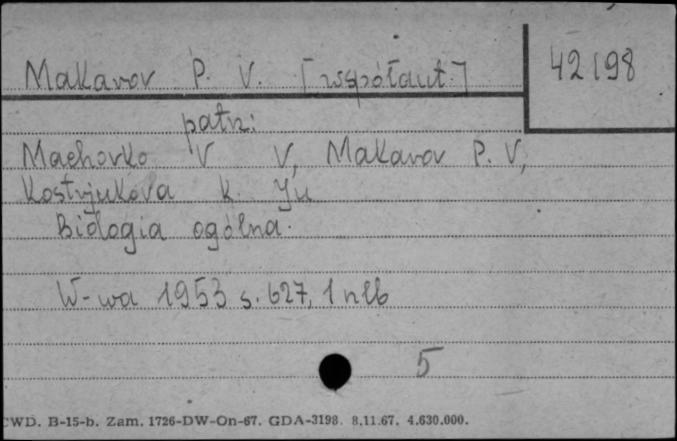 Makarov P. V. [współaut.]
42198
patrz:
Machovko V V, Makarov P. V,
Kostrjukova K. Ju
Biologia ogólna.
W-wa 1953 s. 627, 1 nlb
5
CWD. B-15-b. Zam. 1726-DW-On-67. GDA-3198. 8.11.67. 4.630.000.